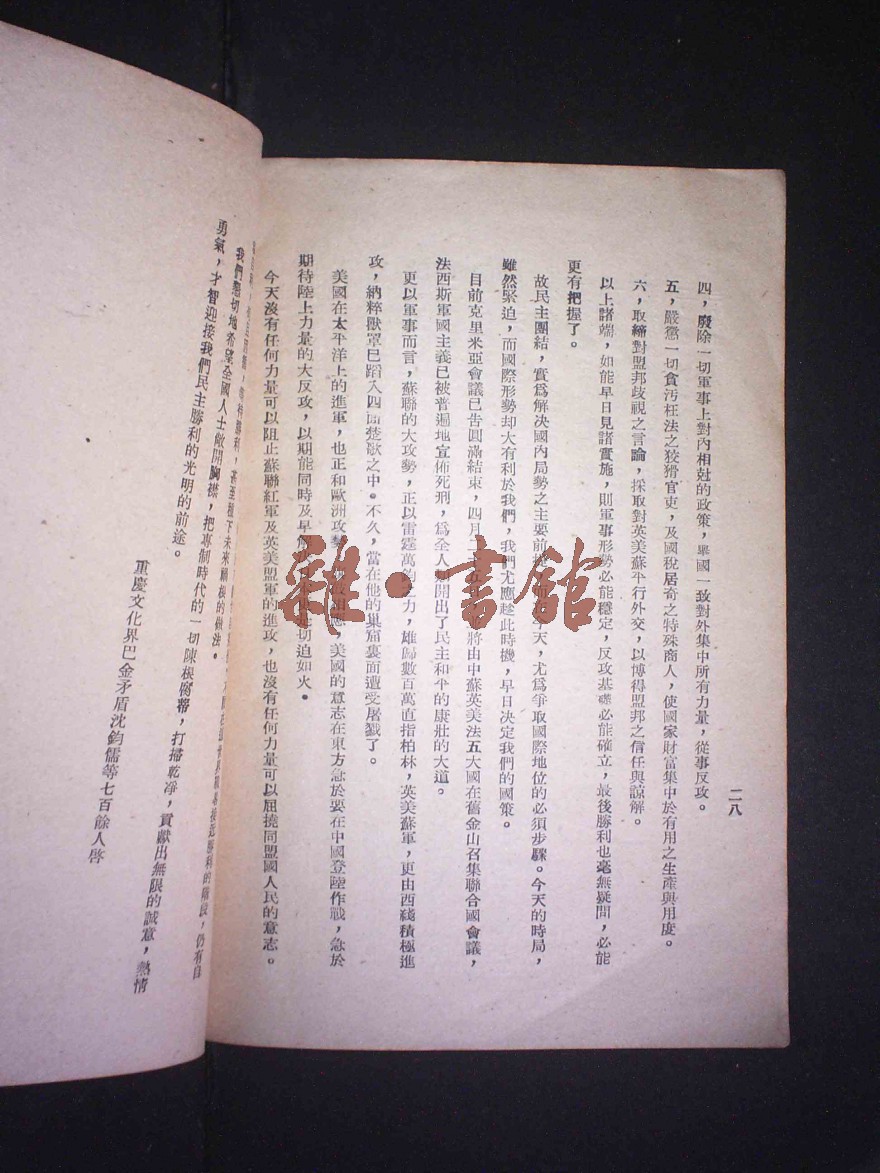 二八
四，廢除一切軍事上對內相尅的政策，舉國一致對外集中所有力量，從事反攻。
五，嚴懲一切貪汚枉法之狡猾官吏，及國稅居奇之特殊商人，使國家財富集中於有用之生產與用度。
六，取締對盟邦歧視之言論，採取對英美蘇平行外交，以博得盟邦之信任與諒解。
以上諸端，如能早日見諸實施，則軍事形勢必能穩定，反攻基礎必能確立，最後勝利也毫無疑問，必能
更有把握了。
故民主團結，實爲解決國內局勢之主要前　今天，尤爲爭取國際地位的必須步驟。今天的時局，
雖然緊迫，而國際形勢却大有利於我們，我們尤應趁此時機，早日決定我們的國策。
目前克里米亞會議已告圓滿結束，四月　將由中蘇英美法五大國在舊金山召集聯合國會議，
法西斯軍國主義已被普遍地宣佈死刑，爲全人　開出了民主和平的康壯的大道。
更以軍事而言，蘇聯的大攻勢，正以雷霆萬　力，雄師數百萬直指柏林，英美蘇軍，更由西綫積極進
攻，納粹獸軍已蹈入四面楚歌之中。不久，當在他的巢窟裏而遭受屠戮了。
美國在太平洋上的進軍，也正和歐洲攻勢　應，美國的意志在東方急於要在中國登陸作戰，急於
期待陸上力量的大反攻，以期能同時及早　切迫如火。
今天沒有任何力量可以阻止蘇聯紅軍及英美盟軍的進攻，也沒有任何力量可以屈撓同盟國人民的意志。
勝利，甚至種下未來禍根的做法。
接近勝利的階段，仍有自
我們懇切地希望全國人士敞開胸襟，把專制時代的一切陳根腐蒂，打掃乾淨，貢獻出無限的誠意，熱情
勇氣，才智迎接我們民主勝利的光明的前途。
重慶文化界巴金矛盾沈鈞儒等七百餘人啓
雜·書館